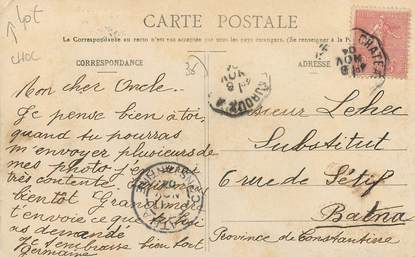 Lot
CHOC
CARTE POSTALE
La Correspondance au recto n'est pas acceptée par tous les pays étrangers. (Se renseigner à la Poste)
CORRESPONDANCE
ADRESSE
36
CHATEA
NOV
04
Mon cher Oncle.
Je pense bien à toi,
quand tu pourras
m'envoyer plusieurs de
mes photo, je
très contente
bientôt Grandmère
t'envoie ce que tu
as demandé
Je t'embrasse bien fort
Germaine
Monsieur Lehec
Substitut
6 rue de Sétif
Batna
Province de Constantine